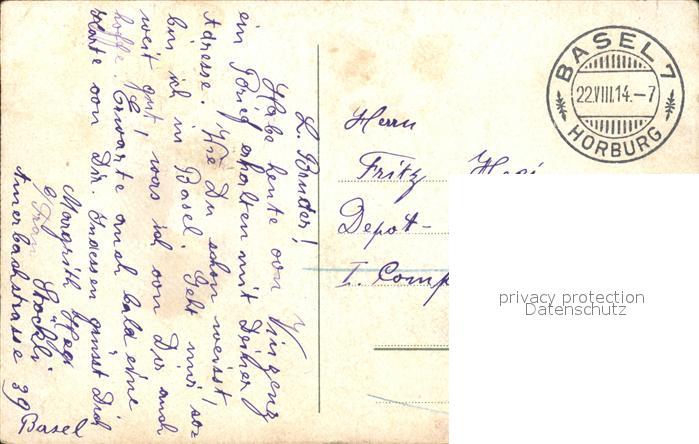 L. Bruder!
Habe heute von Vinzenz
ein Brief erhalten mit Deiner
Adresse. Wie Du schon weisst,
bin ich in Basel. Geht mir so=
weit gut, was ich von Dir auch
hoffe. Erwarte auch bald eine
Karte von Dir. Indessen grüsst Dich
Margrith Hegi
b/ Frau Stöckli
Amerbachstrasse 39
Basel
Herrn
Fritz Hegi
Depot-
I. Comp
BASEL 7
22.VIII.14.–7
HORBURG
privacy protection
Datenschutz